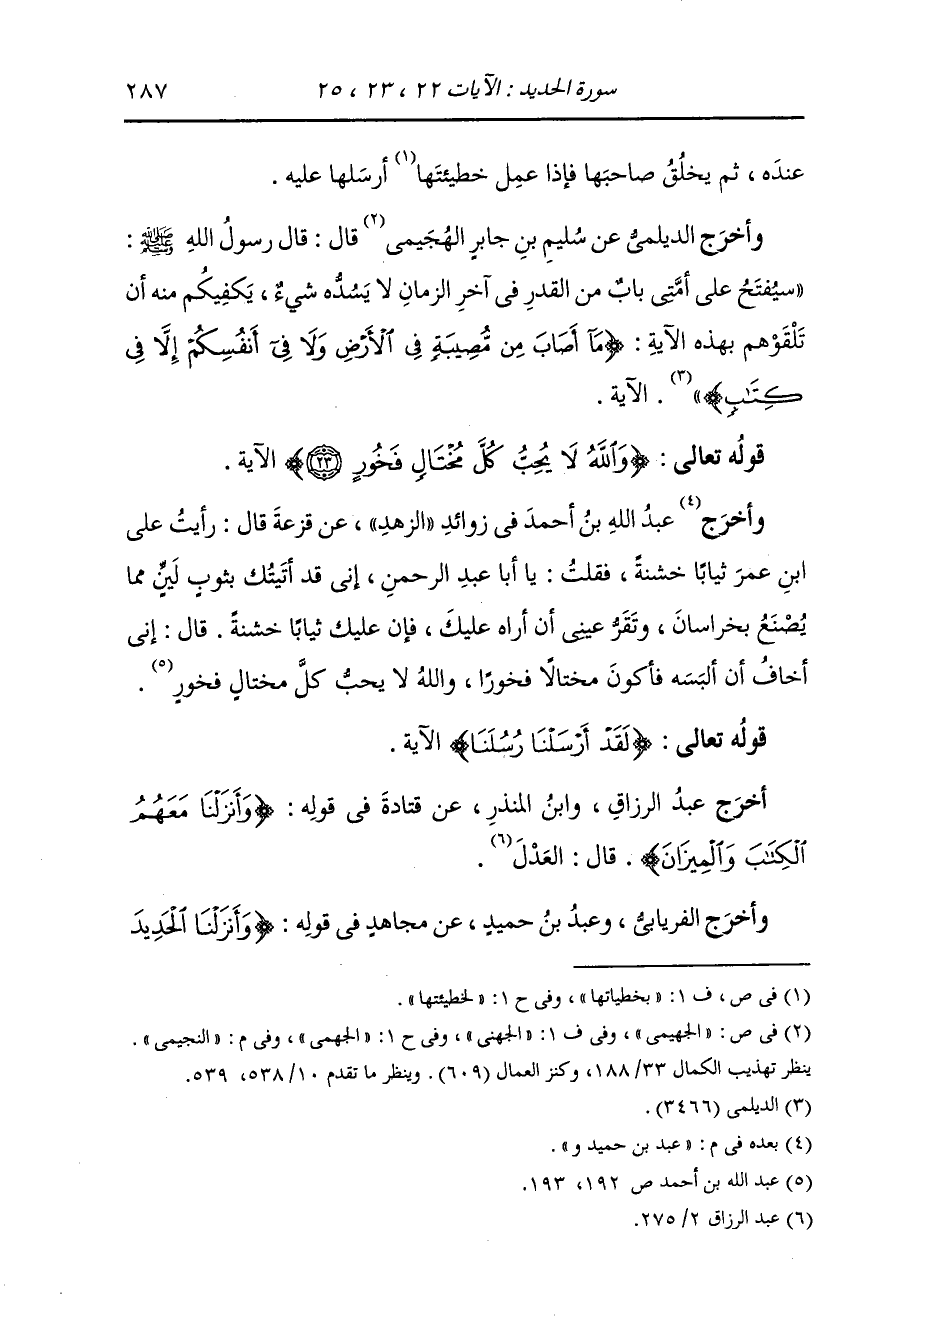 سورة الحديد : الآيات ٢٢ ، ٢٣ ، ٢٥ ٢٨٧
عندَه ، ثم يخلُقُ صاحبَها فإذا عمِل خطيئتَها(١) أرسَلها عليه .
وأخرَج الديلمىُّ عن سُليمِ بنِ جابرٍ الهُجَيمى(٢) قال : قال رسولُ اللهِ ﷺ :
«سيُفتَحُ على أمَّتِى بابٌ من القدرِ فى آخرِ الزمانِ لا يَسُدُّه شيءٌ ، يَكفِيكُم منه أن
تَلْقَوْهم بهذه الآيةِ : ﴿مَآ أَصَابَ مِن مُّصِيبَةٍ فِى ٱلْأَرْضِ وَلَا فِىٓ أَنفُسِكُمْ إِلَّا فِى
كِتَـٰبٍ﴾»(٣) . الآية .
قولُه تعالى : ﴿وَٱللَّهُ لَا يُحِبُّ كُلَّ مُخْتَالٍ فَخُورٍ ٢٣﴾ الآية .
وأخرَج(٤) عبدُ اللهِ بنُ أحمدَ فى زوائدِ «الزهدِ» ، عن قزعةَ قال : رأيتُ على
ابنِ عمرَ ثيابًا خشنةً ، فقلتُ : يا أبا عبدِ الرحمنِ ، إنى قد أتَيتُك بثوبٍ لَيِّنٍ مما
يُصْنَعُ بخراسانَ ، وتَقَرُّ عينى أن أراه عليكَ ، فإن عليك ثيابًا خشنةً . قال : إنى
أخافُ أن ألبَسَه فأكونَ مختالًا فخورًا ، واللهُ لا يحبُّ كلَّ مختالٍ فخورٍ(٥) .
قولُه تعالى : ﴿لَقَدْ أَرْسَلْنَا رُسُلَنَا﴾ الآية .
أخرَج عبدُ الرزاقِ ، وابنُ المنذرِ ، عن قتادةَ فى قولِه : ﴿وَأَنزَلْنَا مَعَهُمُ
ٱلْكِتَـٰبَ وَٱلْمِيزَانَ﴾ . قال : العَدْلَ(٦) .
وأخرَج الفريابىُّ ، وعبدُ بنُ حميدٍ ، عن مجاهدٍ فى قولِه : ﴿وَأَنزَلْنَا ٱلْحَدِيدَ
(١) فى ص ، ف ١: «بخطياتها» ، وفى ح ١: «لخطيئتها» .
(٢) فى ص : «الجهيمى» ، وفى ف ١: «الجهنى» ، وفى ح ١: «الجهمى» ، وفى م : «النجيمى» .
ينظر تهذيب الكمال ٣٣/ ١٨٨، وكنز العمال (٦٠٩) . وينظر ما تقدم ١٠/ ٥٣٨، ٥٣٩.
(٣) الديلمى (٣٤٦٦) .
(٤) بعده فى م : «عبد بن حميد و» .
(٥) عبد الله بن أحمد ص ١٩٢، ١٩٣.
(٦) عبد الرزاق ٢/ ٢٧٥.